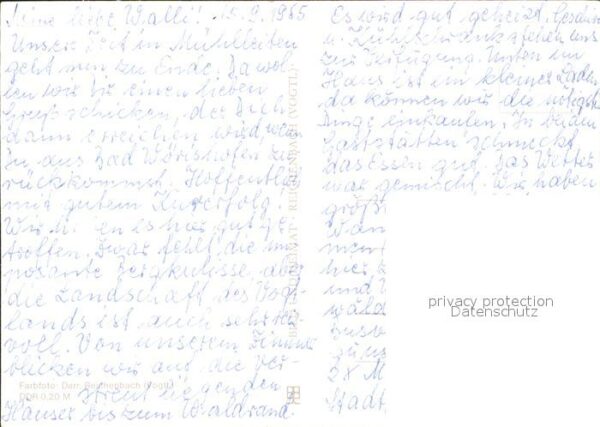 Meine liebe Walli! 15.9.1985
Unsere Zeit in Mühlleiten
geht nun zu Ende. Da wol-
len wir Dir einen lieben
Gruß schicken, der Dich
dann erreichen wird, wenn
Du aus Bad Wörishofen zu-
rückkommst. Hoffentlich
mit gutem Kurerfolg.
Wir h en es hier gut ge-
troffen. Zwar fehlt die im-
posante Bergkulisse, aber
die Landschaft des Vogt-
lands ist auch sehr reiz-
voll. Von unserem Zimmer
blicken wir auf die ver-
streut liegenden
Häuser bis zum Waldrand.
Farbfoto: Darr, Reichenbach (Vogtl.)
DDR 0,20 M
BILD UND HEIMAT REICHENBACH (VOGTL)
Es wird gut geheizt. Geschirr
u. Kühlschrank stehen uns
zur Verfügung. Unten im
Haus ist ein kleiner Laden,
da können wir die nötigsten
Dinge einkaufen. In beiden
Gaststätten schmeckt
das Essen gut. Das Wetter
war gemischt. Wir haben
größ
Wan
men
hier
und
wäld
Busv
28 M
Stadt
privacy protection
Datenschutz